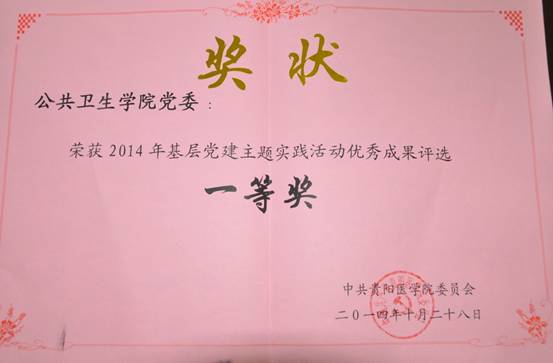 奖 状
公共卫生学院党委：
荣获2014年基层党建主题实践活动优秀成果评选
一等奖
中共贵阳医学院委员会
二〇一四年十月二十八日